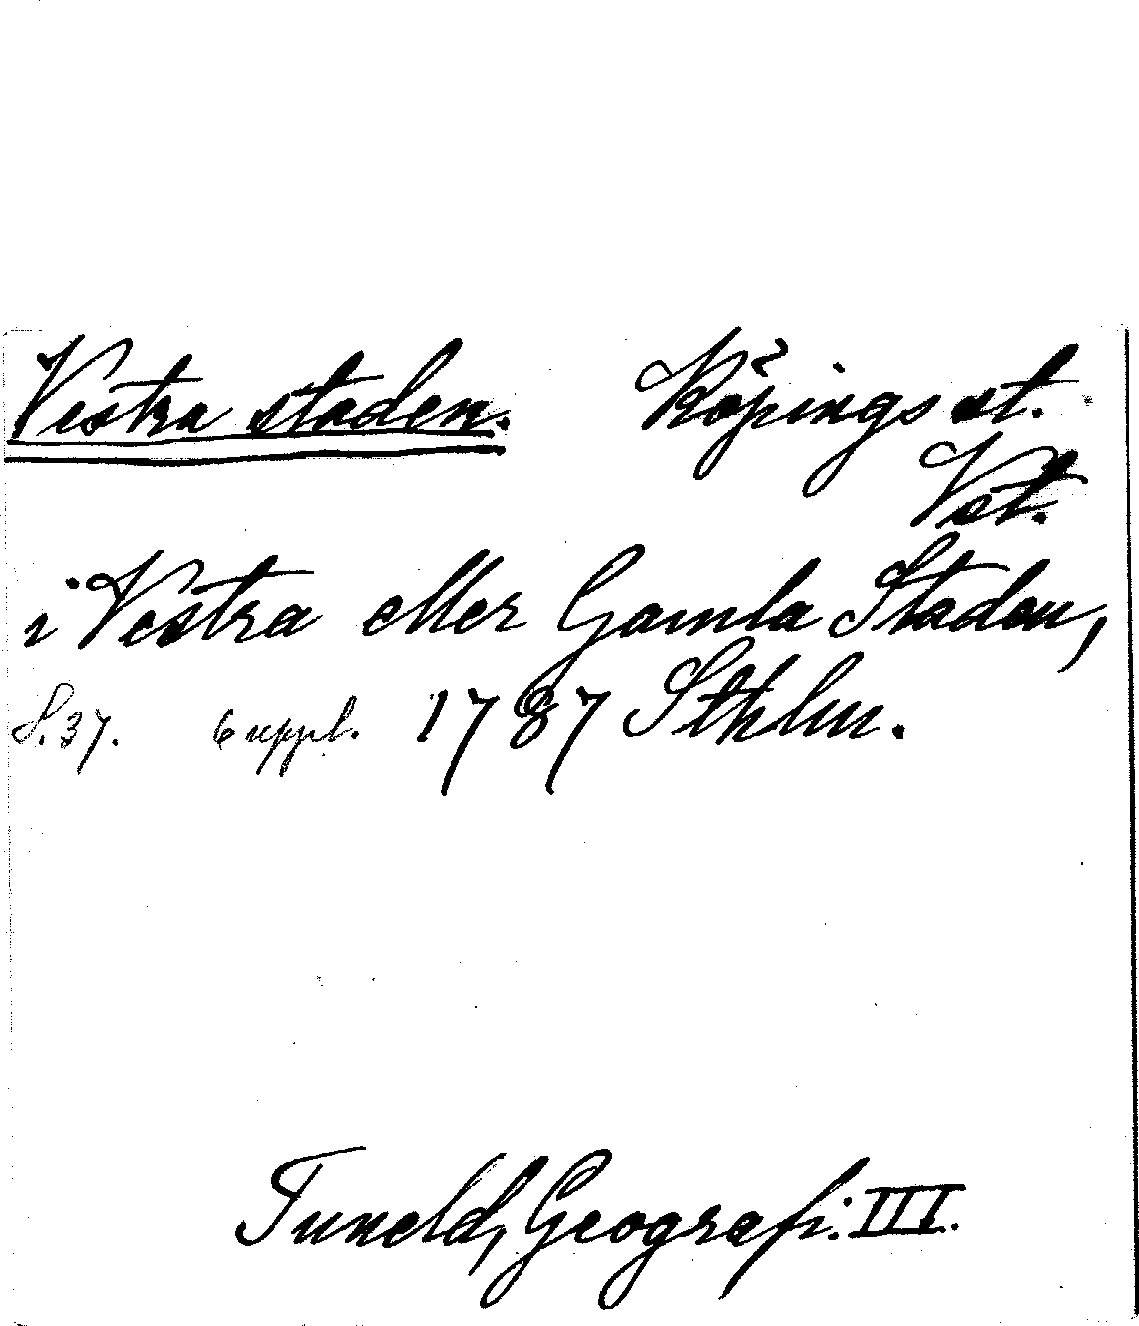 Vestra staden. Köpings st.
Vst.
i Vestra eller Gamla Staden,
S. 37. 6 uppl. 1787 Sthlm.
Tuneld, Geografi. III.